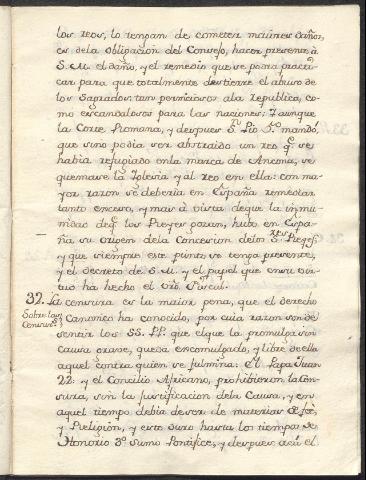 los reos, lo tengan de cometer maiores daños,
es dela obligacion del Consejo, hacer presente à
S. M. el daño, y el remedio que se podra practi-
car para que totalmente destierre el abuso de
los Sagrados tan perniciosos ala republica, co-
mo escandalosos para las naciones: Y aunque
la Corte Romana, y despues Sn. Pio 5º. mandó,
que sino podia ser abstraido un reo qe. se
havia refugiado enla marca de Ancona, se
quemase la Iglesia y al reo en ella: con ma-
yor razon se deberia en España remediar
tanto exceso, y mas à vista deque la inmu-
nidad deqe. los Reyes gozan, hubo en Espa-
ña su origen dela Concesion delos Sres. Reyes,
y que siempre este punto se tenga presente,
y el decreto de S. M. y el papel que en su vir-
tud ha hecho el dho. Fiscal.
32. La censura es la maior pena, que el derecho
Sobre las
Censuras
Canonico ha conocido, por cuia razon son de
sentir los SS. PP. que elque la promulga sin
causa grave, queda excomulgado, y libre de ella
aquel contra quien se fulmina: El Papa Juan
22. y el Concilio Africano, prohibieron la Cen-
sura, sin la justificacion dela Causa, y en
aquel tiempo debia deser de materias de feè,
y Religion, y esto duró hasta los tiempos de
Honorio 3º Sumo Pontifice, y despues acá el